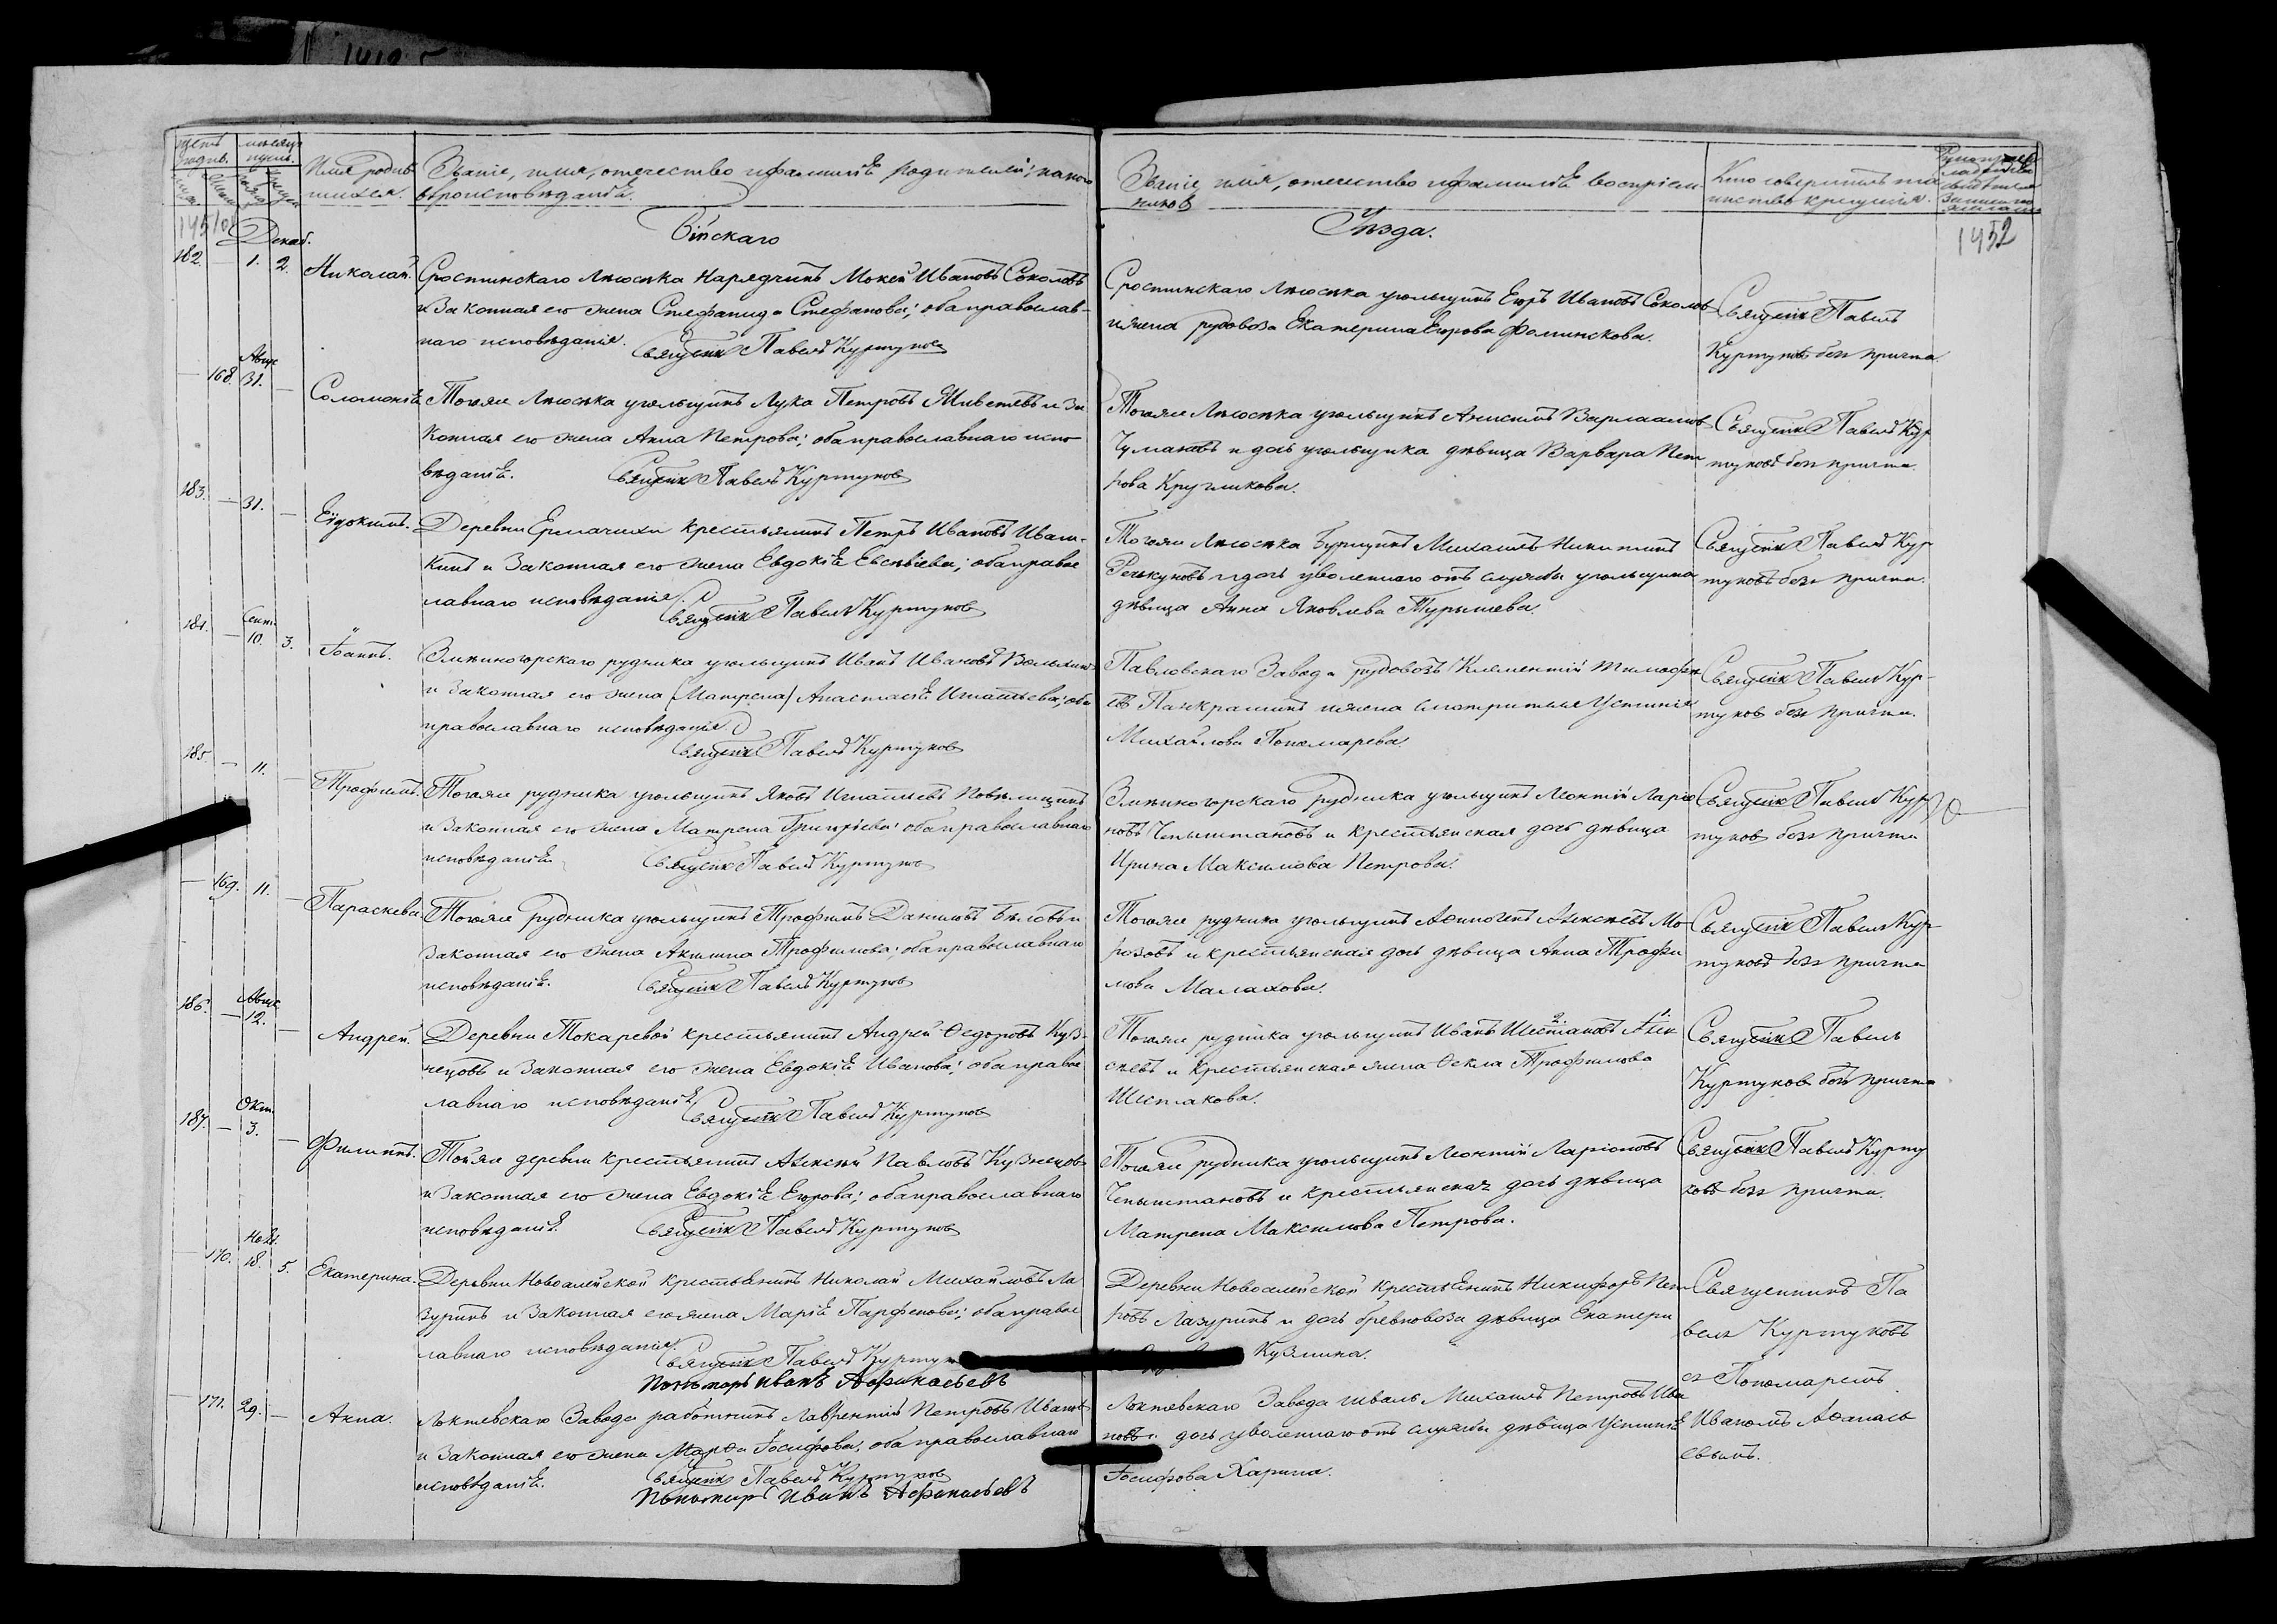 Имя родив
шихся.
Званіе, имя, отечество и фамилія родителей; какого
вѣроисповѣданія.
Званіе, имя, отечество и фамилія воспріем
никовъ
Кто совершилъ та
инство крещенія.
Бійскаго
Уѣзда.
1451об
1452
Декаб.
182. — 1. 2. Николай.
Сростинскаго Лѣсника Нарядчикъ Мокей Ивановъ Соколовъ
и Законная его жена Стефанида Стефанова; оба православ-
наго исповѣданія. Священк Павелъ Куртуковъ
Сростинскаго Лѣсника угольщикъ Егоръ Ивановъ Соколовъ
и жена рудовоза Екатерина Егорова Фоминскова.
Священк Павелъ
Куртуковъ безъ причта.
Авгус
— 168. 31. — Соломонія
Тогоже Лѣсника угольщикъ Лука Петровъ и За
конная его жена Анна Петрова; оба православнаго испо
вѣданія. Священк Павелъ Куртуковъ
Тогоже Лѣсника угольщикъ Анисимъ Варлаамовъ
Чумаковъ и дочь угольщика дѣвица Варвара Пет
рова Кругликова.
Священк Павелъ Кур
туковъ безъ причта.
183. — 31. — Евдокимъ.
Деревни Ермачихи крестьянинъ Петръ Ивановъ Иваш-
кинъ и Законная его жена Евдокія Евсѣвіева; оба право
лавнаго исповѣданія. Священк Павелъ Куртуковъ
Тогоже Лѣсника Бурщикъ Михаилъ Никитинъ
и дочь уволеннаго отъ службы угольщика
дѣвица Анна Яковлева Турышева.
Священк Павелъ Кур
туковъ безъ причта.
Сент.
184. — 10. 3. Іоаннъ.
Змѣиногорскаго рудника угольщикъ Иванъ Ивановъ
и Законная его жена (Матрена) Анастасія Игнатьева; оба
православнаго исповѣданія. Священк Павелъ Куртуковъ
Павловскаго Завода рудовозъ Климентій Тимофѣе
въ Панкратинъ и жена смотрителя Устинія
Михайлова Пономарева.
Священк Павелъ Кур-
туковъ безъ причта.
185. — 11. — Трофимъ.
Тогоже рудника угольщикъ Яковъ Игнатьевъ
и Законная его жена Матрена Григорьева; оба православнаго
исповѣданія. Священк Павелъ Куртуковъ
Змѣиногорскаго Рудника угольщикъ Леонтій Ларіо
новъ Чепыштановъ и крестьянская дочь дѣвица
Ирина Максимова Петрова.
Священк Павелъ Кур
туковъ безъ причта
— 169. 11. — Параскева
Тогоже рудника угольщикъ Трофимъ Даниловъ Бѣловъ и
Законная его жена Акилина Трофимова; оба православнаго
исповѣданія. Священк Павелъ Куртуковъ
Тогоже рудника угольщикъ Аѳиногенъ Алексѣевъ Мо
розовъ и крестьянская дочь дѣвица Анна Трофи
мова Малахова.
Священк Павелъ Кур
туковъ безъ причта
Авгус
186. — 12. — Андрей.
Деревни Токаревой крестьянинъ Андрей Ѳедоровъ Куз-
нецовъ и Законная его жена Евдокія Иванова; оба право
лавнаго исповѣданія. Священк Павелъ Куртуковъ
Тогоже рудника угольщикъ Иванъ Шестаковъ Алек
сѣевъ и крестьянская жена Ѳекла Трофимова
Шестакова.
Священк Павелъ
Куртуковъ безъ причта
Окт.
187. — 3. — Филиппъ.
Тойже деревни крестьянинъ Алексѣй Павловъ Кузнецовъ
и Законная его жена Евдокія Егорова; оба православнаго
исповѣданія. Священк Павелъ Куртуковъ
Тогоже рудника угольщикъ Леонтій Ларіоновъ
Чепыштановъ и крестьянская дочь дѣвица
Матрена Максимова Петрова.
Священк Павелъ Курту
ковъ безъ причта.
Нояб.
— 170. 18. 5. Екатерина.
Деревни Новоалейской крестьянинъ Николай Михайловъ Ла
зуринъ и Законная его жена Марія Парфенова; оба право
лавнаго исповѣданія. Священк Павелъ
Пономарь Иванъ Афонасьевъ
Деревни Новоалейской крестьянинъ Никифоръ Пет
ровъ Лазуринъ и дочь бревновоза дѣвица Екатери
Кузмина.
Священникъ Па
велъ Куртуковъ
съ Пономаремъ
Иваномъ Аѳанась
евымъ.
— 171. 29. — Анна.
Локтевскаго Завода работникъ Лаврентій Петровъ Ивановъ
и Законная его жена Марѳа Іосифова, оба православнаго
исповѣданія. Священк Павелъ Куртуковъ
Пономарь Иванъ Афонасьевъ
Локтевскаго Завода Михаилъ Петровъ Ива
новъ и дочь уволеннаго отъ службы дѣвица Устинія
Іосифова Харина.